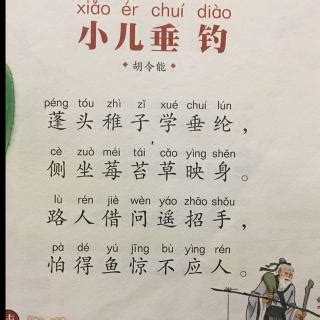 xiǎo ér chuí diào
小儿垂钓
·胡令能·
péng tóu zhì zǐ xué chuí lún
蓬头稚子学垂纶，
cè zuò méi tái cǎo yìng shēn
侧坐莓苔草映身。
lù rén jiè wèn yáo zhāo shǒu
路人借问遥招手，
pà dé yú jīng bù yìng rén
怕得鱼惊不应人。